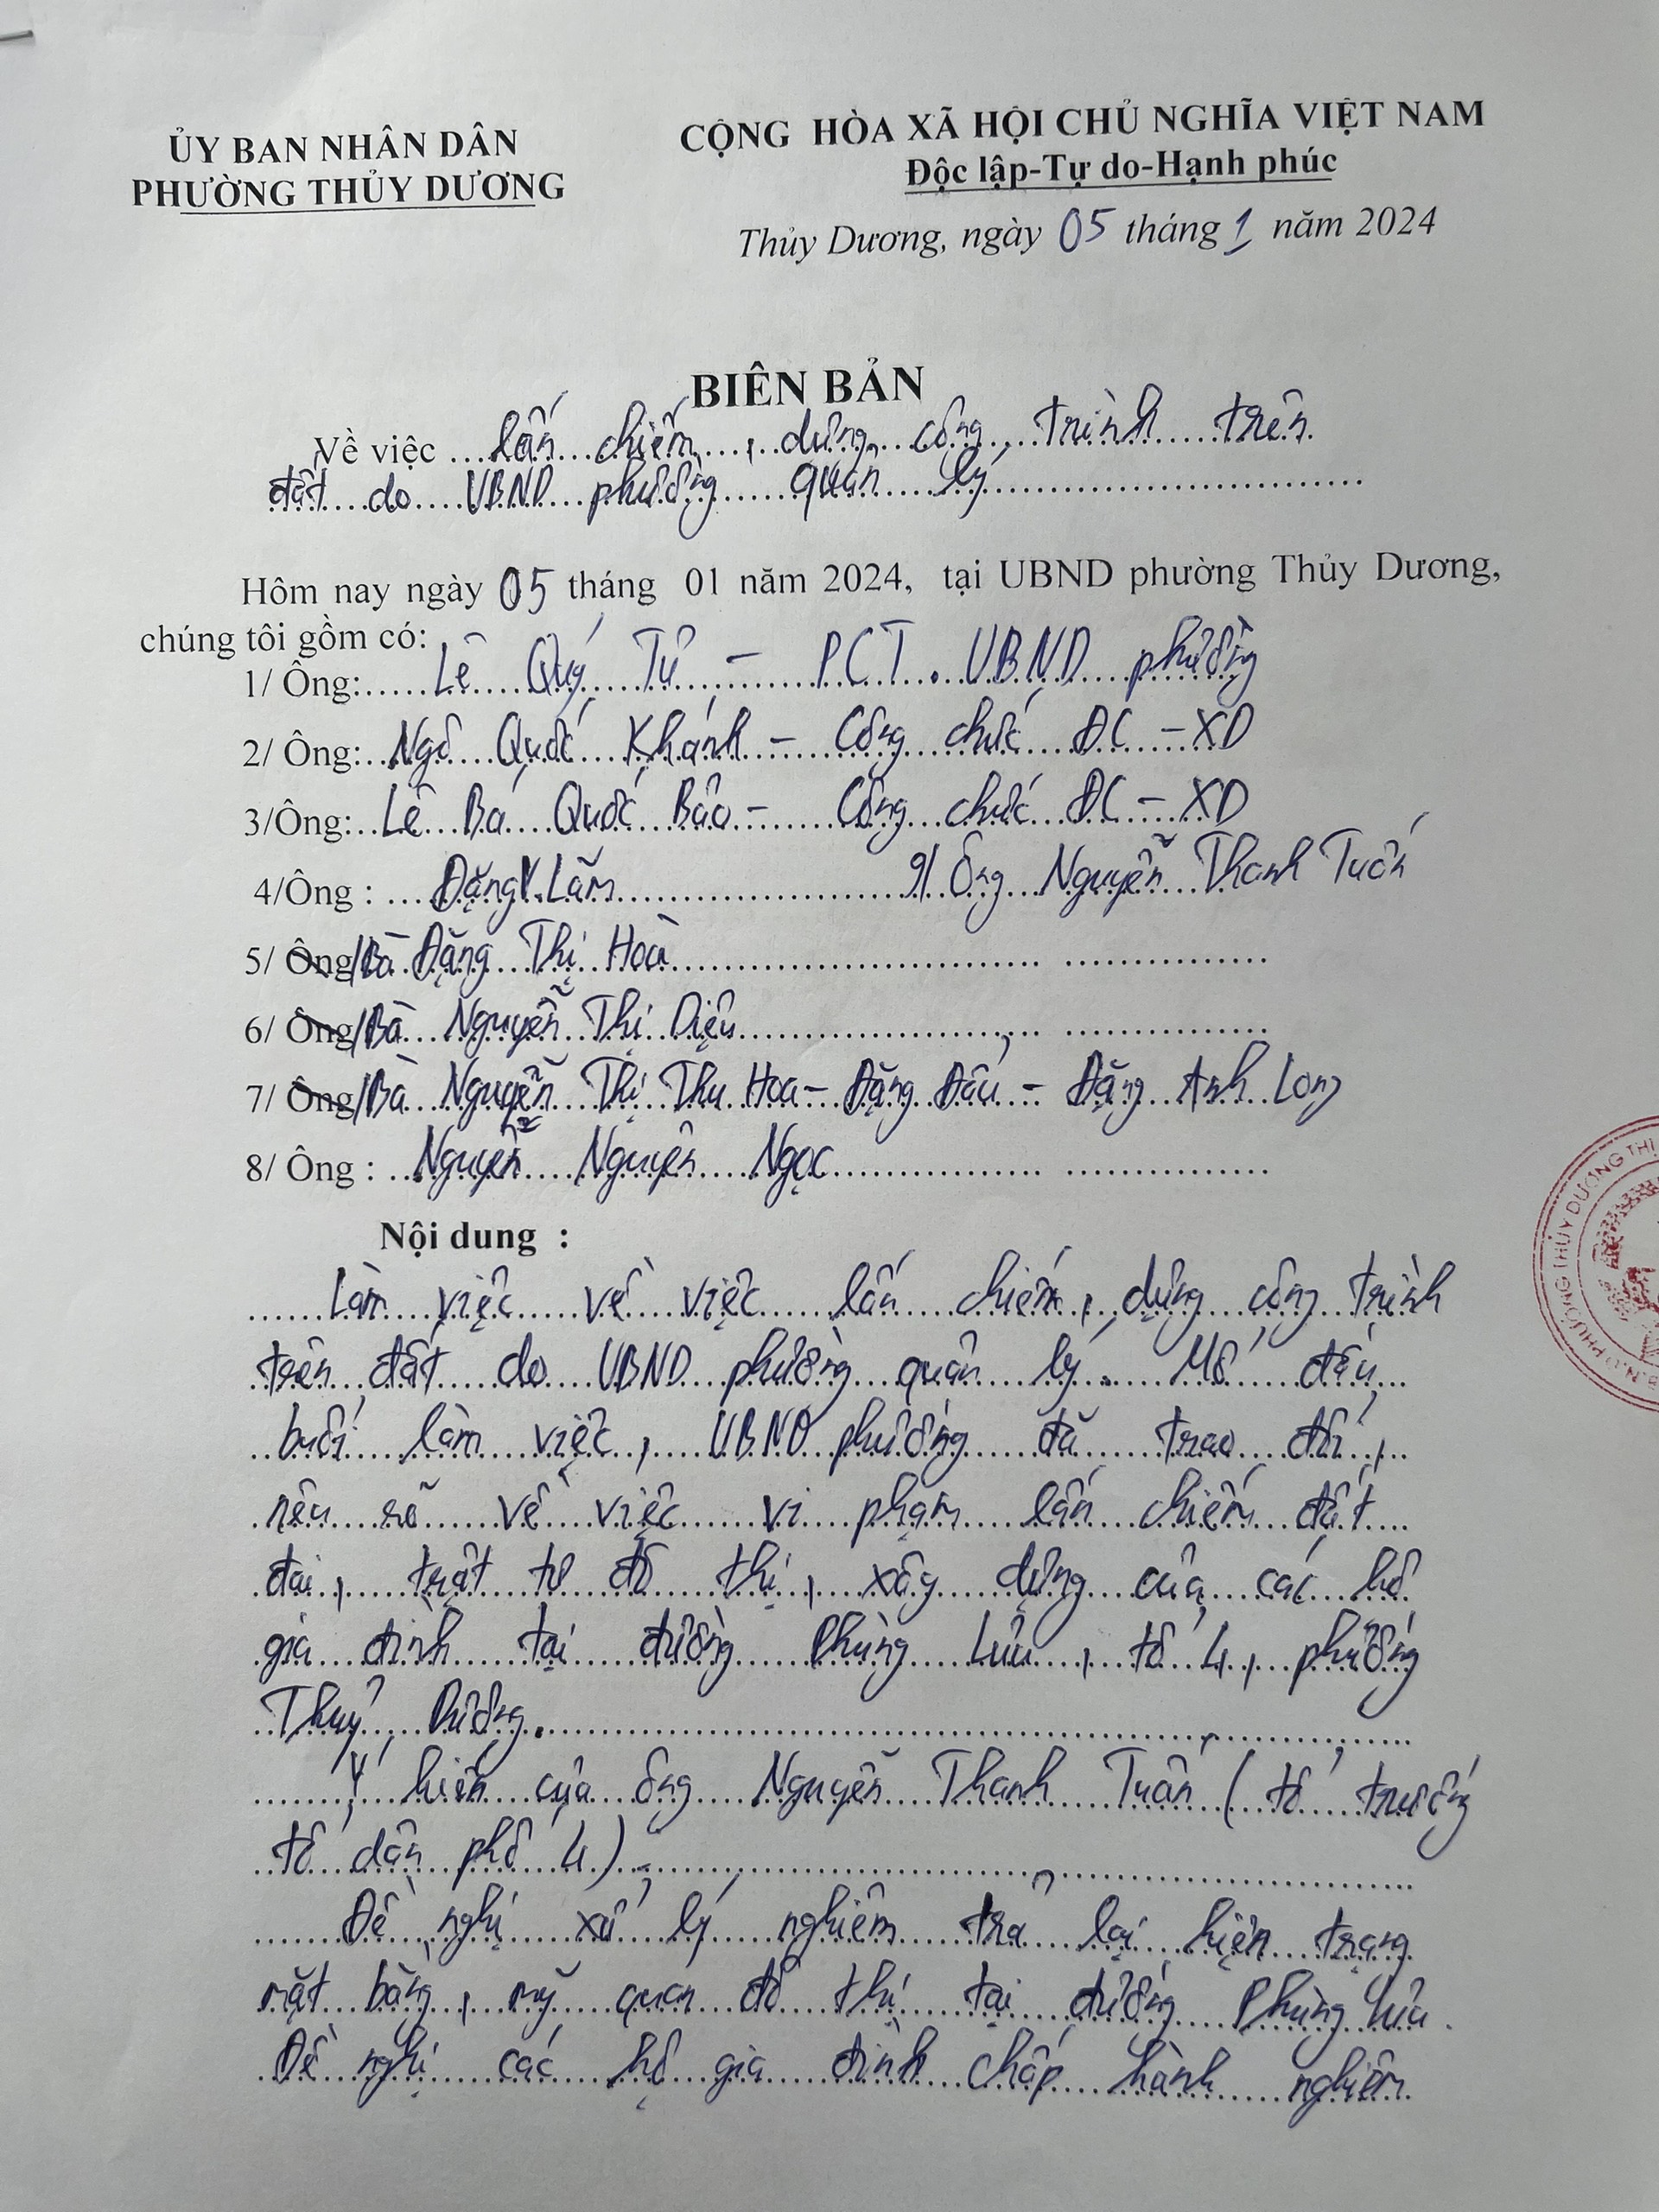 ỦY BAN NHÂN DÂN
PHƯỜNG THỦY DƯƠNG
CỘNG HÒA XÃ HỘI CHỦ NGHĨA VIỆT NAM
Độc lập-Tự do-Hạnh phúc
Thủy Dương, ngày 05 tháng 1 năm 2024
BIÊN BẢN
Về việc lấn chiếm, dựng công trình trên
đất do UBND phường quản lý
Hôm nay ngày 05 tháng 01 năm 2024, tại UBND phường Thủy Dương,
chúng tôi gồm có:
1/ Ông: Lê Quý Tứ - PCT. UBND phường
2/ Ông: Ngô Quốc Khánh - Công chức ĐC - XD
3/Ông: Lê Bá Quốc Bảo - Công chức ĐC - XD
4/Ông : Đặng V. Lãm 9/ Ông Nguyễn Thanh Tuấn
5/ Ông/Bà Đặng Thị Hoà
6/ Ông/Bà Nguyễn Thị Diệu
7/ Ông/Bà Nguyễn Thị Thu Hoa - Đặng Đấu - Đặng Anh Long
8/ Ông : Nguyễn Nguyên Ngọc
Nội dung :
Làm việc về việc lấn chiếm, dựng công trình
trên đất do UBND phường quản lý. Mở đầu
buổi làm việc, UBND phường đã trao đổi,
nêu rõ về việc vi phạm lấn chiếm đất
đai, trật tự đô thị, xây dựng của các hộ
gia đình tại đường Phùng Lưu, tổ 4, phường
Thuỷ Dương.
Ý kiến của ông Nguyễn Thanh Tuấn (tổ trưởng
tổ dân phố 4):
Đề nghị xử lý nghiêm trả lại hiện trạng
mặt bằng, mỹ quan đô thị tại đường Phùng Lưu.
Đề nghị các hộ gia đình chấp hành nghiêm